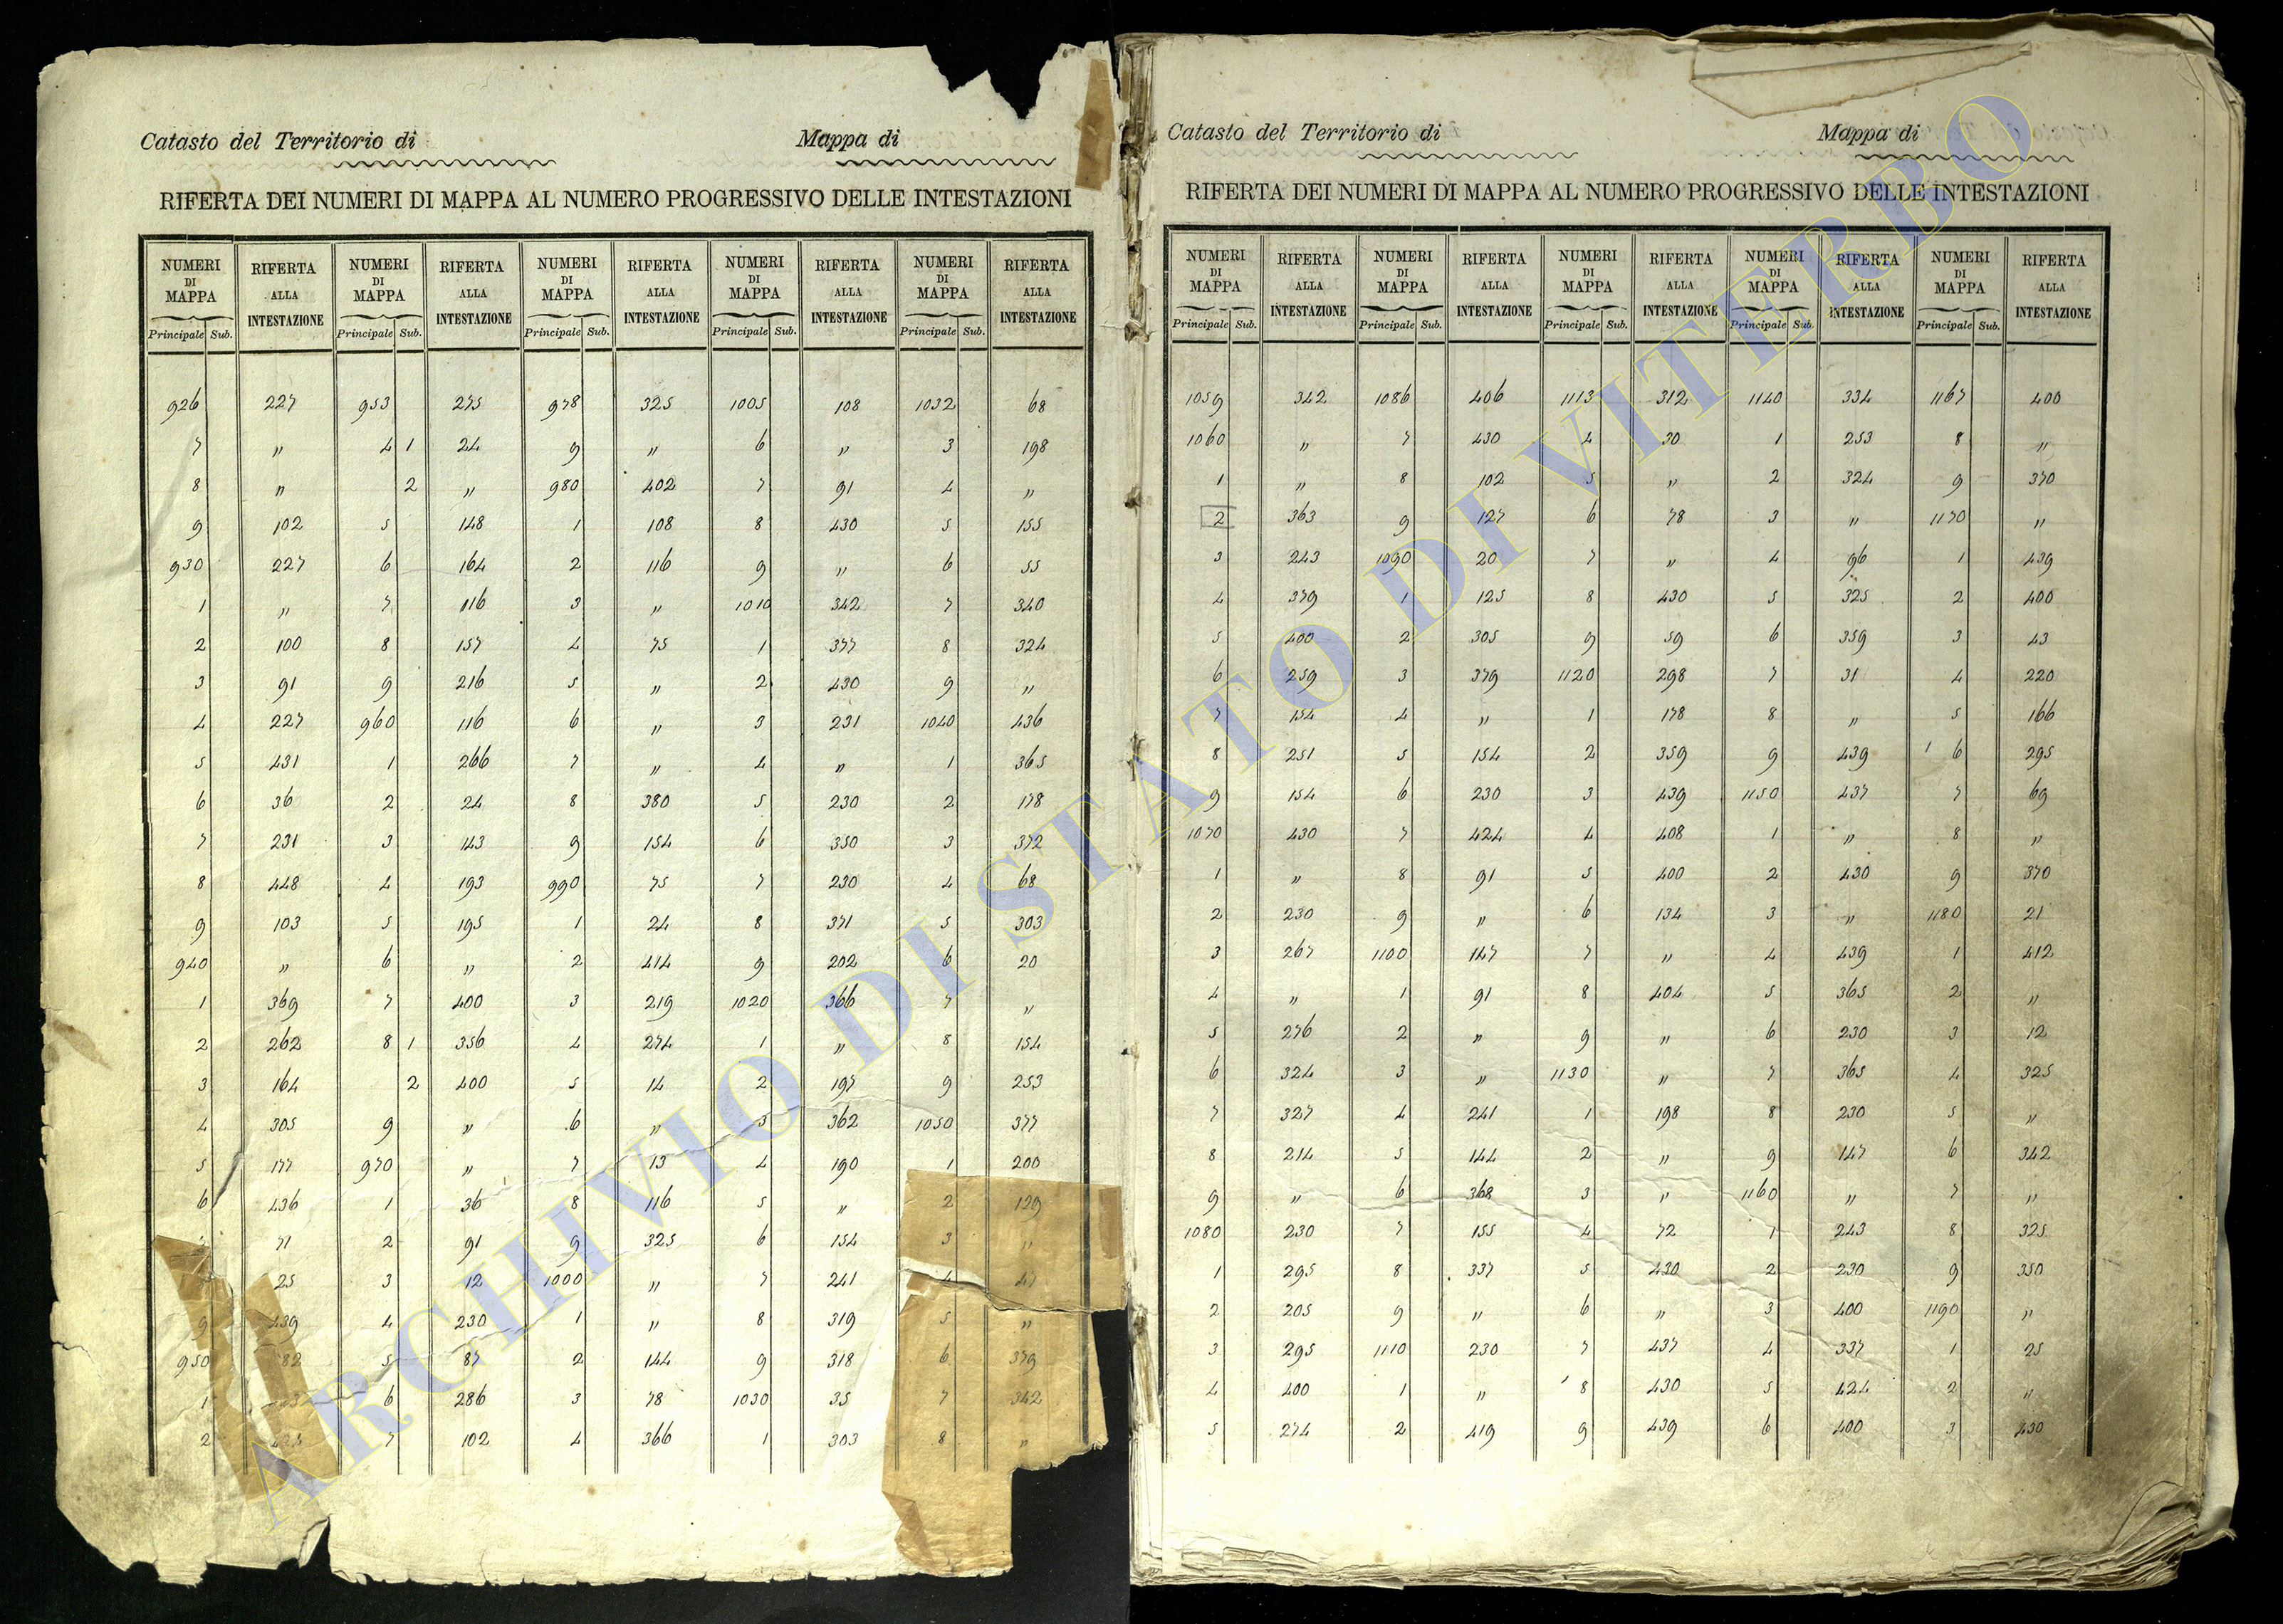 Catasto del Territorio di Mappa di
RIFERTA DEI NUMERI DI MAPPA AL NUMERO PROGRESSIVO DELLE INTESTAZIONI
NUMERI DI MAPPA RIFERTA ALLA INTESTAZIONE NUMERI DI MAPPA RIFERTA ALLA INTESTAZIONE NUMERI DI MAPPA RIFERTA ALLA INTESTAZIONE NUMERI DI MAPPA RIFERTA ALLA INTESTAZIONE NUMERI DI MAPPA RIFERTA ALLA INTESTAZIONE
Principale Sub. Principale Sub. Principale Sub. Principale Sub. Principale Sub.
926 227 953 275 978 325 1005 108 1032 68
7 „ 4 1 24 9 „ 6 „ 3 198
8 „ 2 „ 980 402 7 91 4 „
9 102 5 148 1 108 8 430 5 155
930 227 6 164 2 116 9 „ 6 55
1 „ 7 116 3 „ 1010 342 7 340
2 100 8 157 4 75 1 377 8 324
3 91 9 216 5 „ 2 430 9 „
4 227 960 116 6 „ 3 231 1040 436
5 431 1 266 7 „ 4 „ 1 365
6 36 2 24 8 380 5 230 2 178
7 231 3 143 9 154 6 350 3 372
8 448 4 193 990 75 7 230 4 68
9 103 5 195 1 24 8 371 5 303
940 „ 6 „ 2 414 9 202 6 20
1 369 7 400 3 219 1020 366 7 „
2 262 8 1 356 4 274 1 „ 8 154
3 164 2 400 5 14 2 197 9 253
4 305 9 „ 6 „ 3 362 1050 377
5 177 970 „ 7 13 4 190 1 200
6 436 1 36 8 116 5 „ 2 129
71 2 91 9 325 6 154 3 „
25 3 12 1000 „ 7 241 4 47
9 439 4 230 1 „ 8 319 5 „
950 82 5 87 2 144 9 318 6 379
1 6 286 3 78 1030 35 7 342
2 424 7 102 4 366 1 303 8 „
Catasto del Territorio di Mappa di
RIFERTA DEI NUMERI DI MAPPA AL NUMERO PROGRESSIVO DELLE INTESTAZIONI
NUMERI DI MAPPA RIFERTA ALLA INTESTAZIONE NUMERI DI MAPPA RIFERTA ALLA INTESTAZIONE NUMERI DI MAPPA RIFERTA ALLA INTESTAZIONE NUMERI DI MAPPA RIFERTA ALLA INTESTAZIONE NUMERI DI MAPPA RIFERTA ALLA INTESTAZIONE
Principale Sub. Principale Sub. Principale Sub. Principale Sub. Principale Sub.
1059 342 1086 406 1113 312 1140 334 1167 400
1060 „ 7 430 4 30 1 253 8 „
1 „ 8 102 5 „ 2 324 9 370
2 363 9 127 6 78 3 „ 1170 „
3 243 1090 20 7 „ 4 96 1 439
4 379 1 125 8 430 5 325 2 400
5 400 2 305 9 59 6 359 3 43
6 259 3 379 1120 298 7 31 4 220
7 154 4 „ 1 178 8 „ 5 166
8 251 5 154 2 359 9 439 6 295
9 154 6 230 3 439 1150 437 7 69
1070 430 7 424 4 408 1 „ 8 „
1 „ 8 91 5 400 2 430 9 370
2 230 9 „ 6 134 3 „ 1180 21
3 267 1100 147 7 „ 4 439 1 412
4 „ 1 91 8 404 5 365 2 „
5 276 2 „ 9 „ 6 230 3 12
6 324 3 „ 1130 „ 7 365 4 325
7 327 4 241 1 198 8 230 5 „
8 214 5 144 2 „ 9 147 6 342
9 „ 6 368 3 „ 1160 „ 7 „
1080 230 7 155 4 72 1 243 8 325
1 295 8 337 5 430 2 230 9 350
2 205 9 „ 6 „ 3 400 1190 „
3 295 1110 230 7 437 4 337 1 25
4 400 1 „ 8 430 5 424 2 „
5 274 2 419 9 439 6 400 3 430
ARCHIVIO DI STATO DI VITERBO